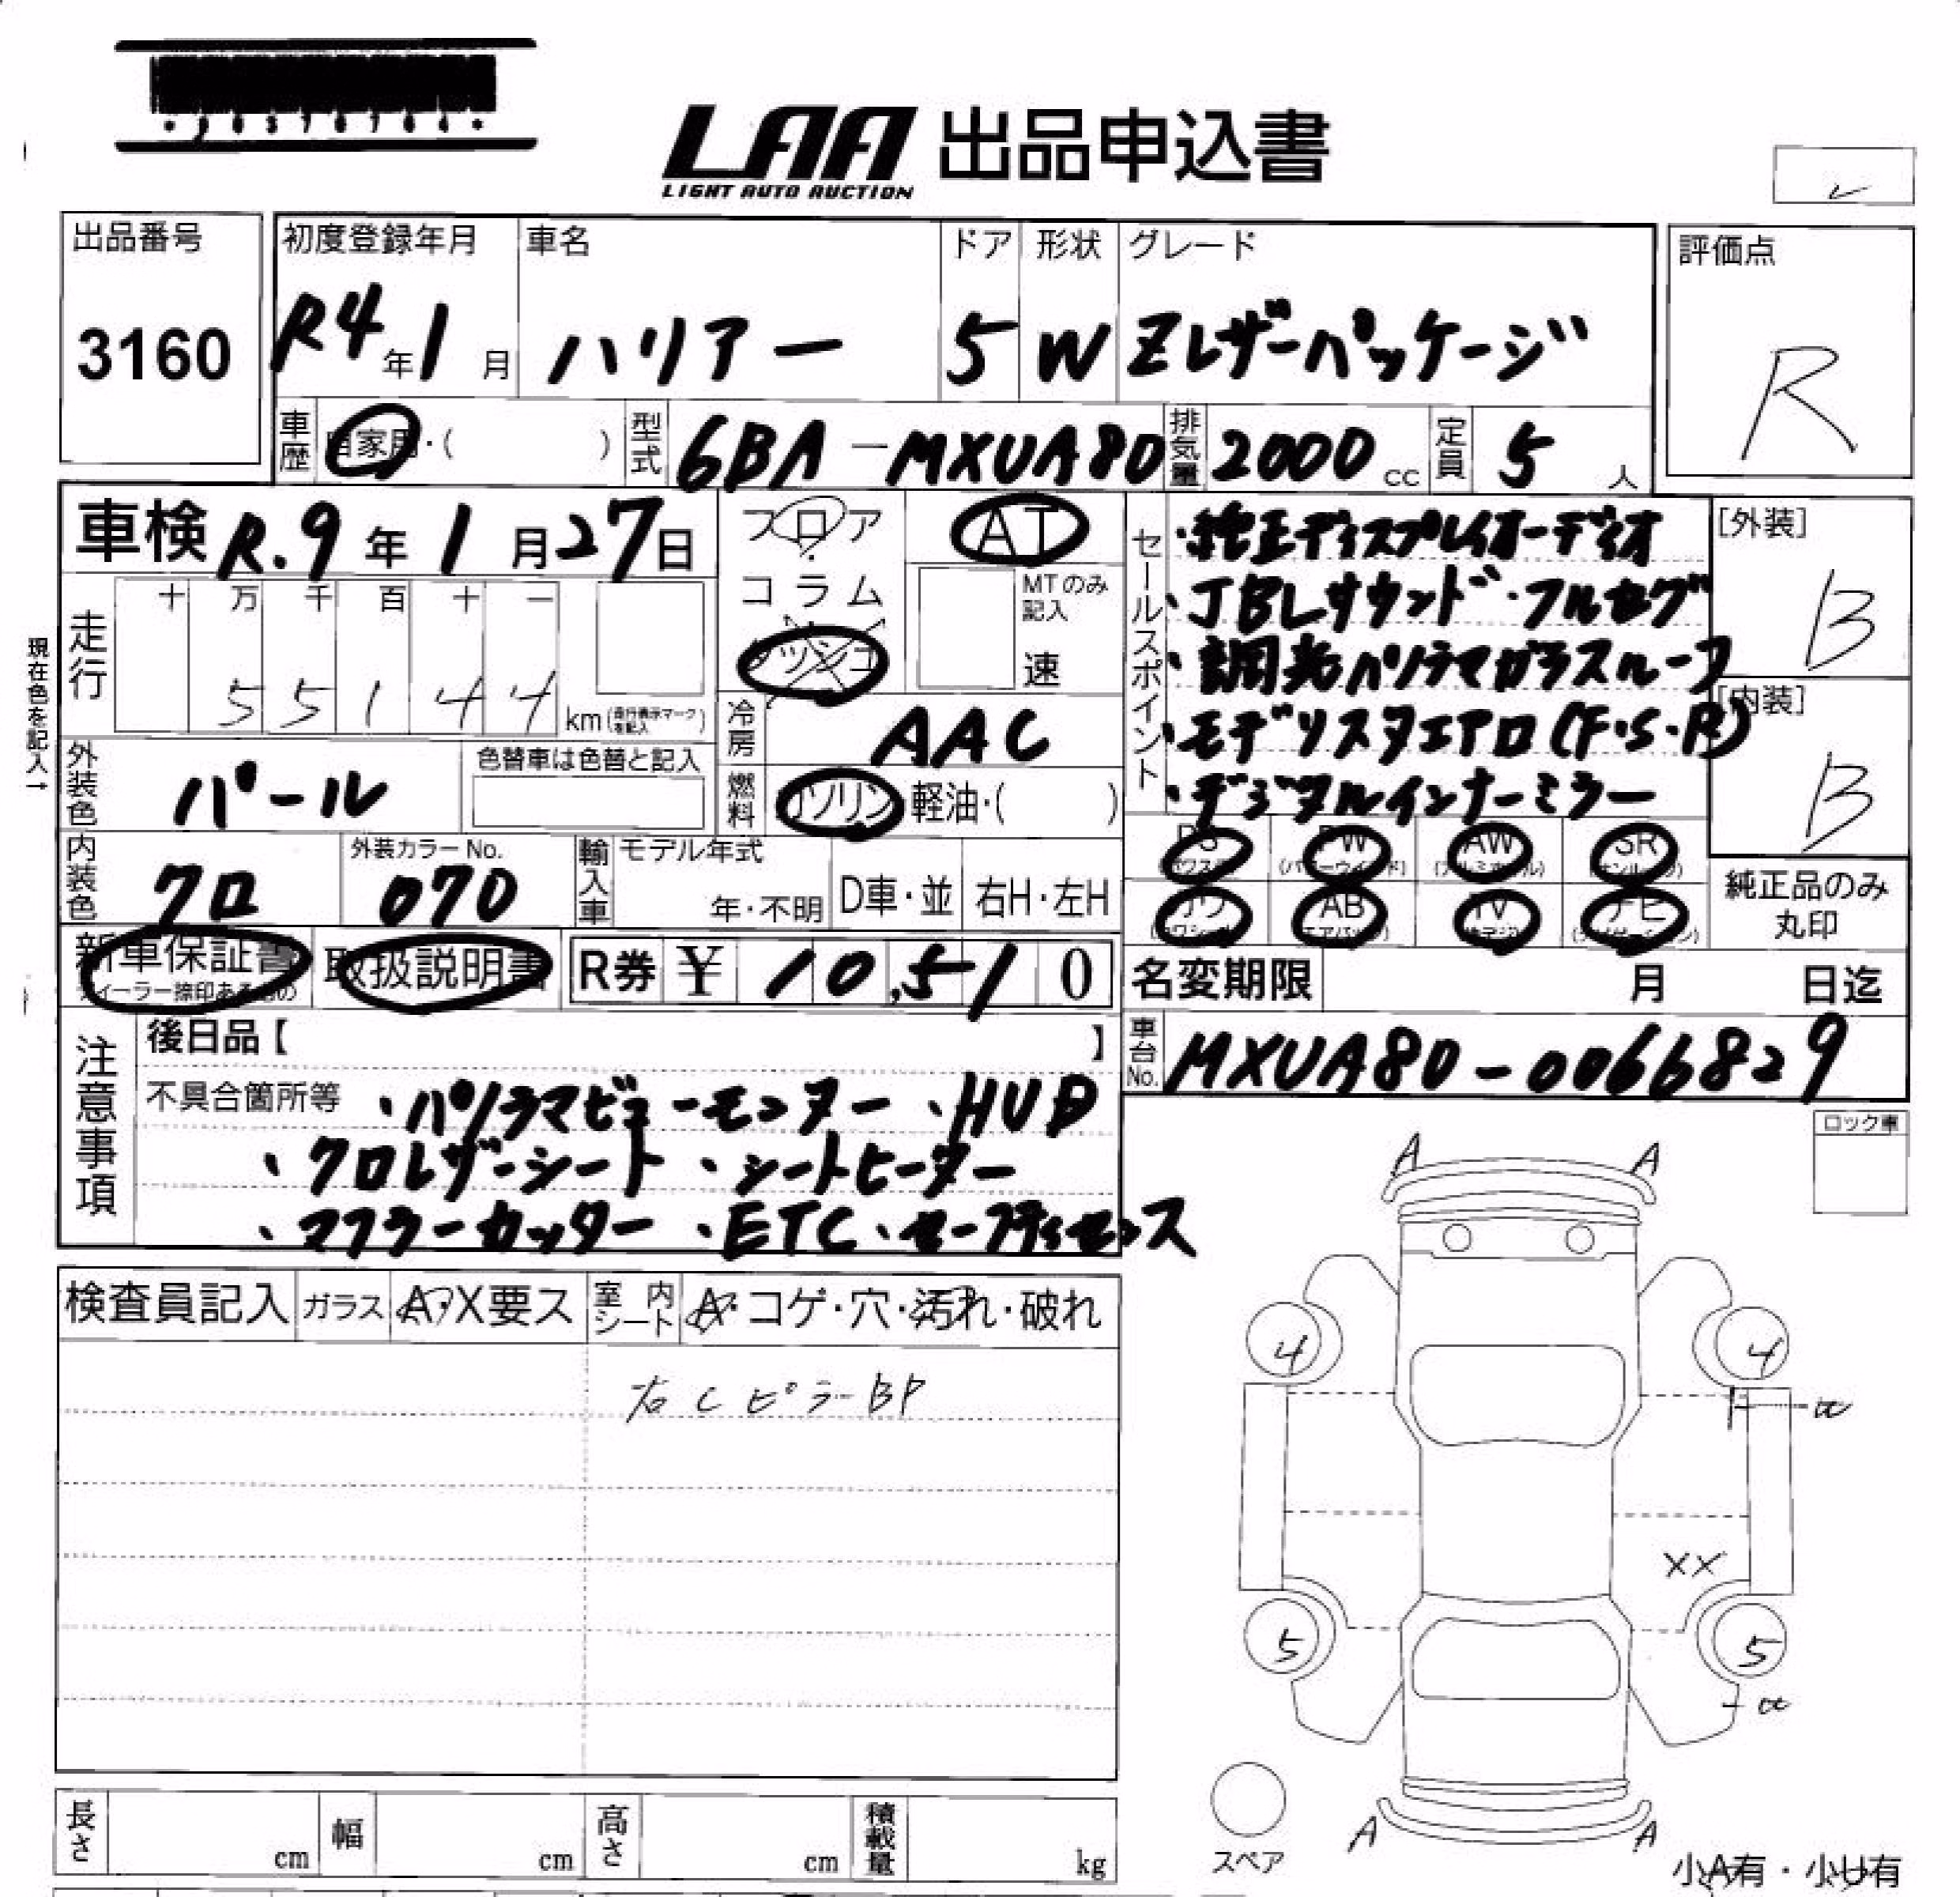 LAA 出品申込書
LIGHT AUTO AUCTION
出品番号
3160
初度登録年月
R4年1月
車名
ハリアー
ドア
5
形状
W
グレード
Zレザーパッケージ
評価点
R
車歴
自家用・( )
型式
6BA-MXUA80
排気量
2000cc
定員
5人
車検 R.9年1月27日
フロア
コラム
AT
MTのみ記入
速
現在色を記入→
走行
十 万 千 百 十 一
5 5 1 4 4 km
外装色
パール
色替車は色替と記入
冷房
AAC
燃料
ガソリン 軽油・( )
内装色
クロ
外装カラーNo.
070
輸入車
モデル年式
年・不明
D車・並
右H・左H
新車保証書
取扱説明書
R券 ¥ 10,510
セールスポイント
・純正ディスプレイオーディオ
・JBLサウンド・フルセグ
・調光パノラマガラスルーフ
・モデリスタエアロ(F・S・R)
・デジタルインナーミラー
PS PW AW SR
AB TV ナビ
[外装]
B
[内装]
B
純正品のみ
丸印
名変期限 月 日迄
車台No.
MXUA80-0066829
注意事項
後日品【 】
不具合箇所等
・パノラマビューモニター ・HUD
・クロレザーシート ・シートヒーター
・マフラーカッター ・ETC ・セーフティセンス
検査員記入
ガラス
A・X要ス
室内シート
A・コゲ・穴・汚れ・破れ
右CピラーBP
ロック車
A A
4 4
XX
5 5
A A
スペア
小A有・小U有
長さ cm
幅 cm
高さ cm
積載量 kg